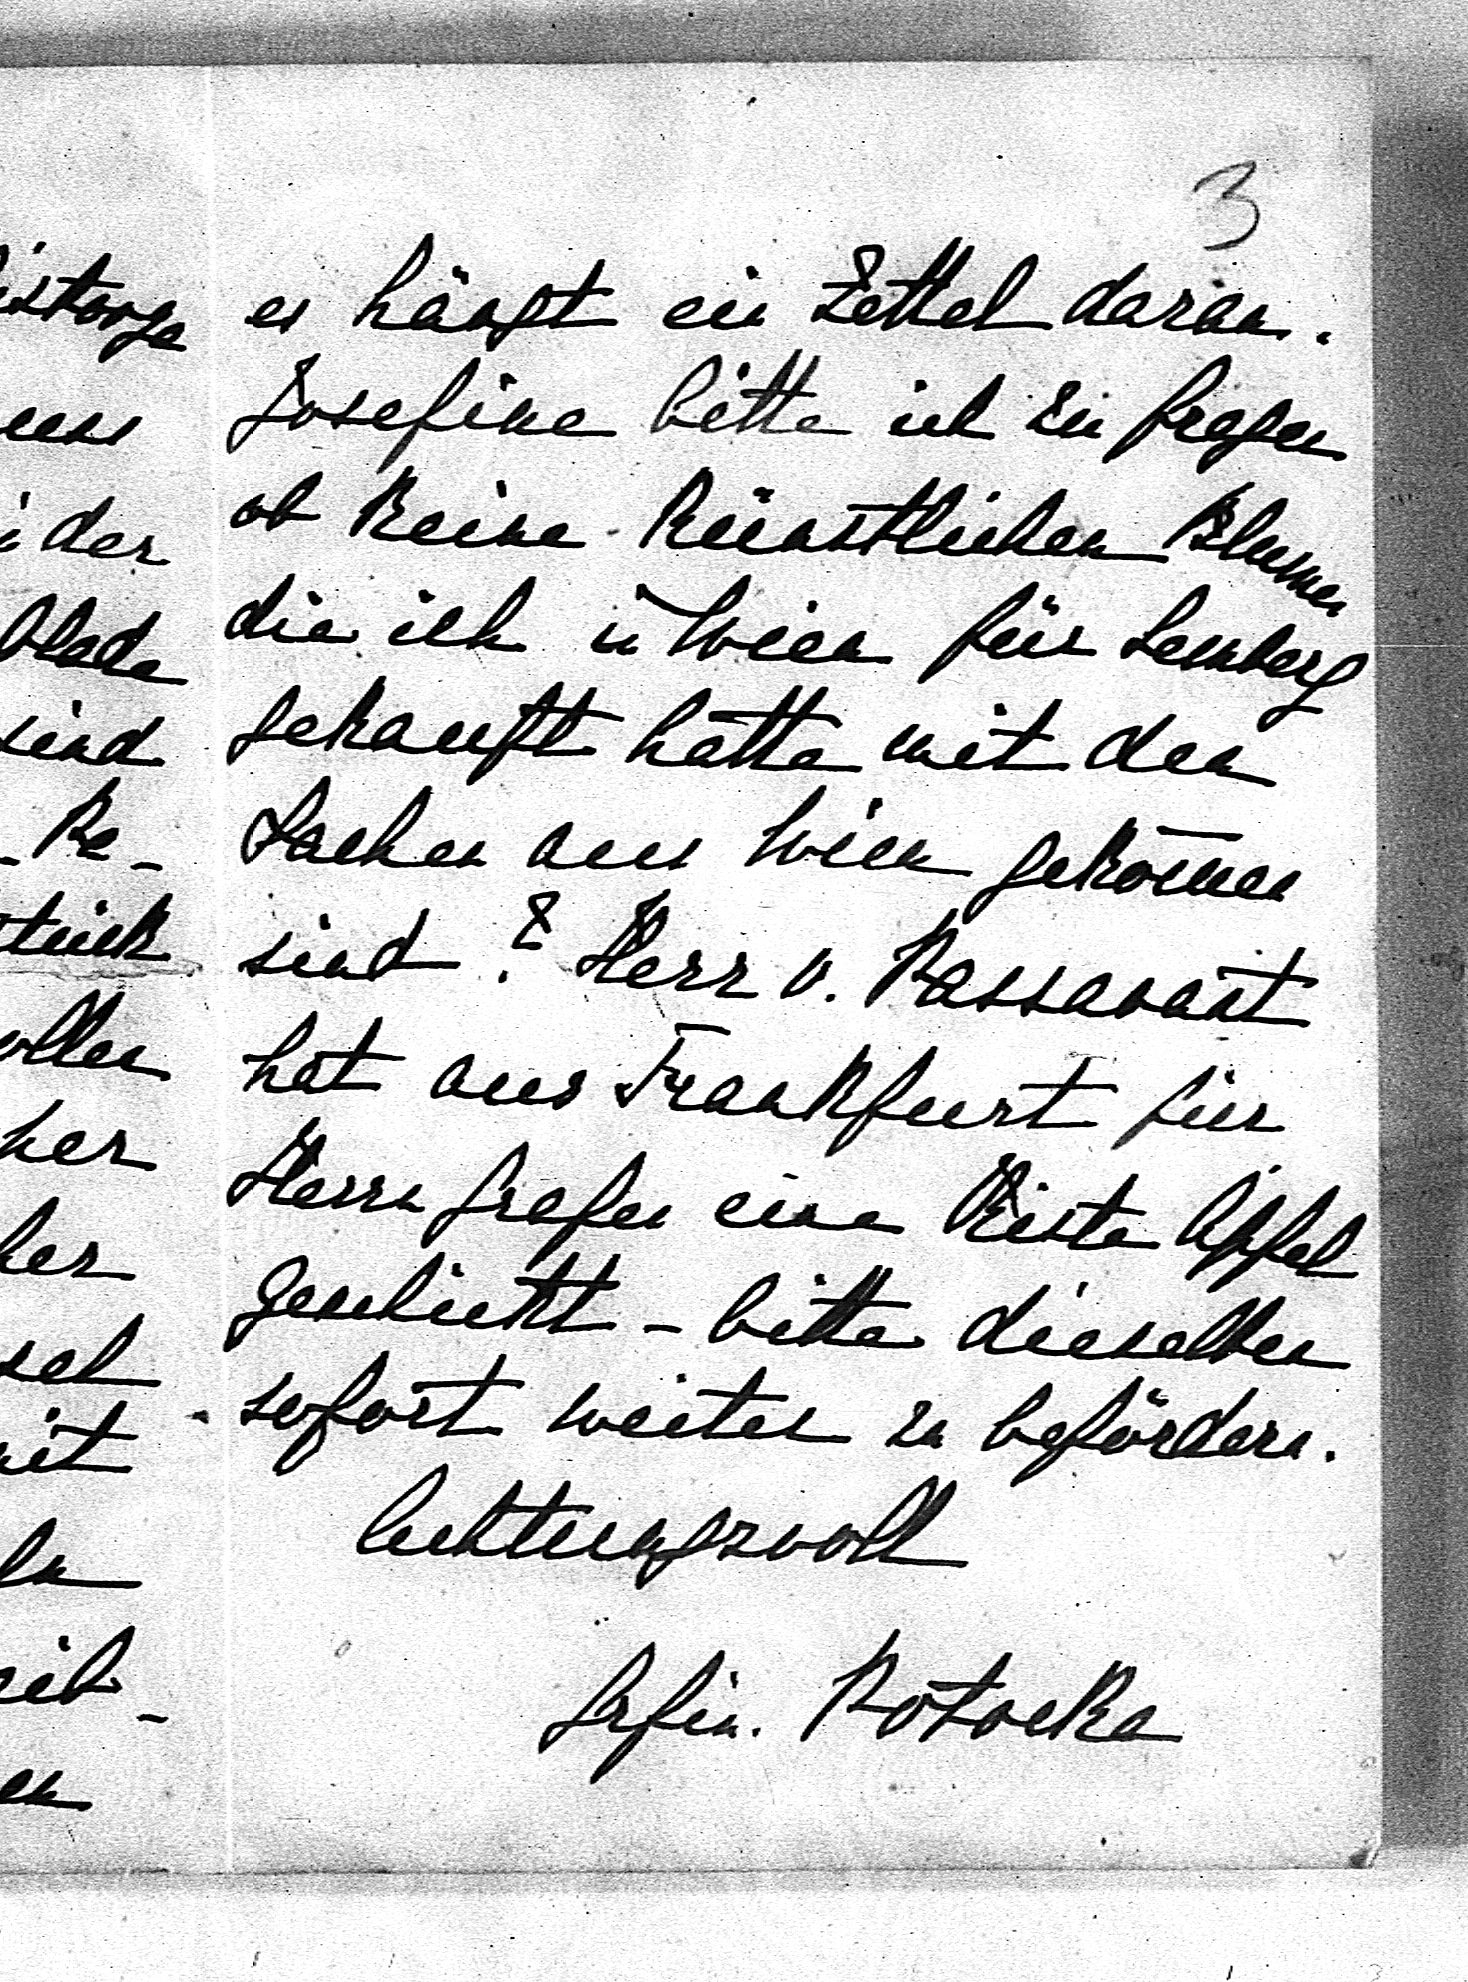 3
es hängt ein Zettel daran.
Josefine bitte ich zu fragen
ob keine künstlichen Blumen
die ich in Wien für Lemberg
gekauft hatte mit den
Sachen aus Wien gekom̄en
sind? Herr v. Passavant
hat aus Frankfurt für
Herrn Grafen eine Kiste Äpfel
geschickt – bitte dieselben
sofort weiter zu befördern.
Achtungsvoll
Grfin. Potocka
der
sind